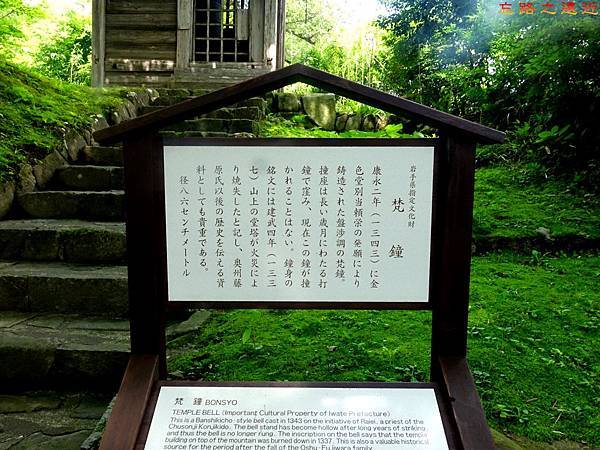 忘路之遠近
岩手県指定文化財
梵鐘
康永二年(一三四三)に金
色堂別当頼栄の発願により
鋳造された盤渉調の梵鐘。
撞座は長い歳月にわたる打
鐘で窪み、現在この鐘が撞
かれることはない。鐘身の
銘文には建武四年(一三三
七)山上の堂塔が火災によ
り焼失したと記し、奥州藤
原氏以後の歴史を伝える資
料としても貴重である。
径八六センチメートル
梵鐘 BONSYO
TEMPLE BELL (Important Cultural Property of Iwate Prefacture)
This is a Banshikicho-style bell cast in 1343 on the initiative of Raiei, a priest of the
Chusonji Konjikido. The bell stand has become hollow after long years of striking,
and thus the bell is no longer rung. The inscription on the bell says that the temple
building on top of the mountain was burned down in 1337. This is also a valuable historical
source for the period after the fall of the Oshu Fujiwara family.